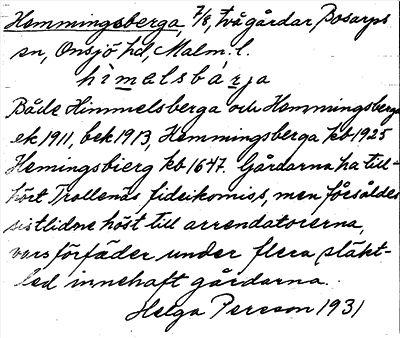 Hemmingsberga, 7/8, två gårdar, Bosarps
sn, Onsjö hd, Malm. l.
himelsbárja
Både Himmelsberga och Hemmingsberga
ek 1911, bek 1913, Hemmingsberga kb 1925
Hemingsbierg kb 1647. Gårdarna ha till-
hört Trollenäs fideikomiss, men försåldes
sistlidne höst till arrendatorerna,
vars förfäder under flera släkt-
led innehaft gårdarna.
Helga Persson 1931